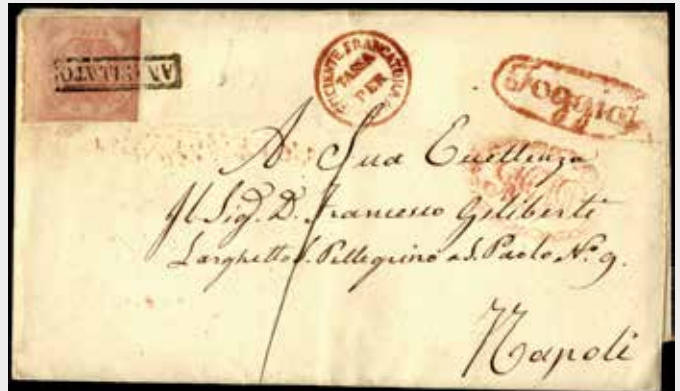 ANNULLATO
INSUFFICIENTE FRANCATURA
TASSA
PER
Foggia
A Sua Eccellenza
Il Sig. D. Francesco Giliberti
Larghetto S. Pellegrino a S. Paolo N.º 9.
Napoli